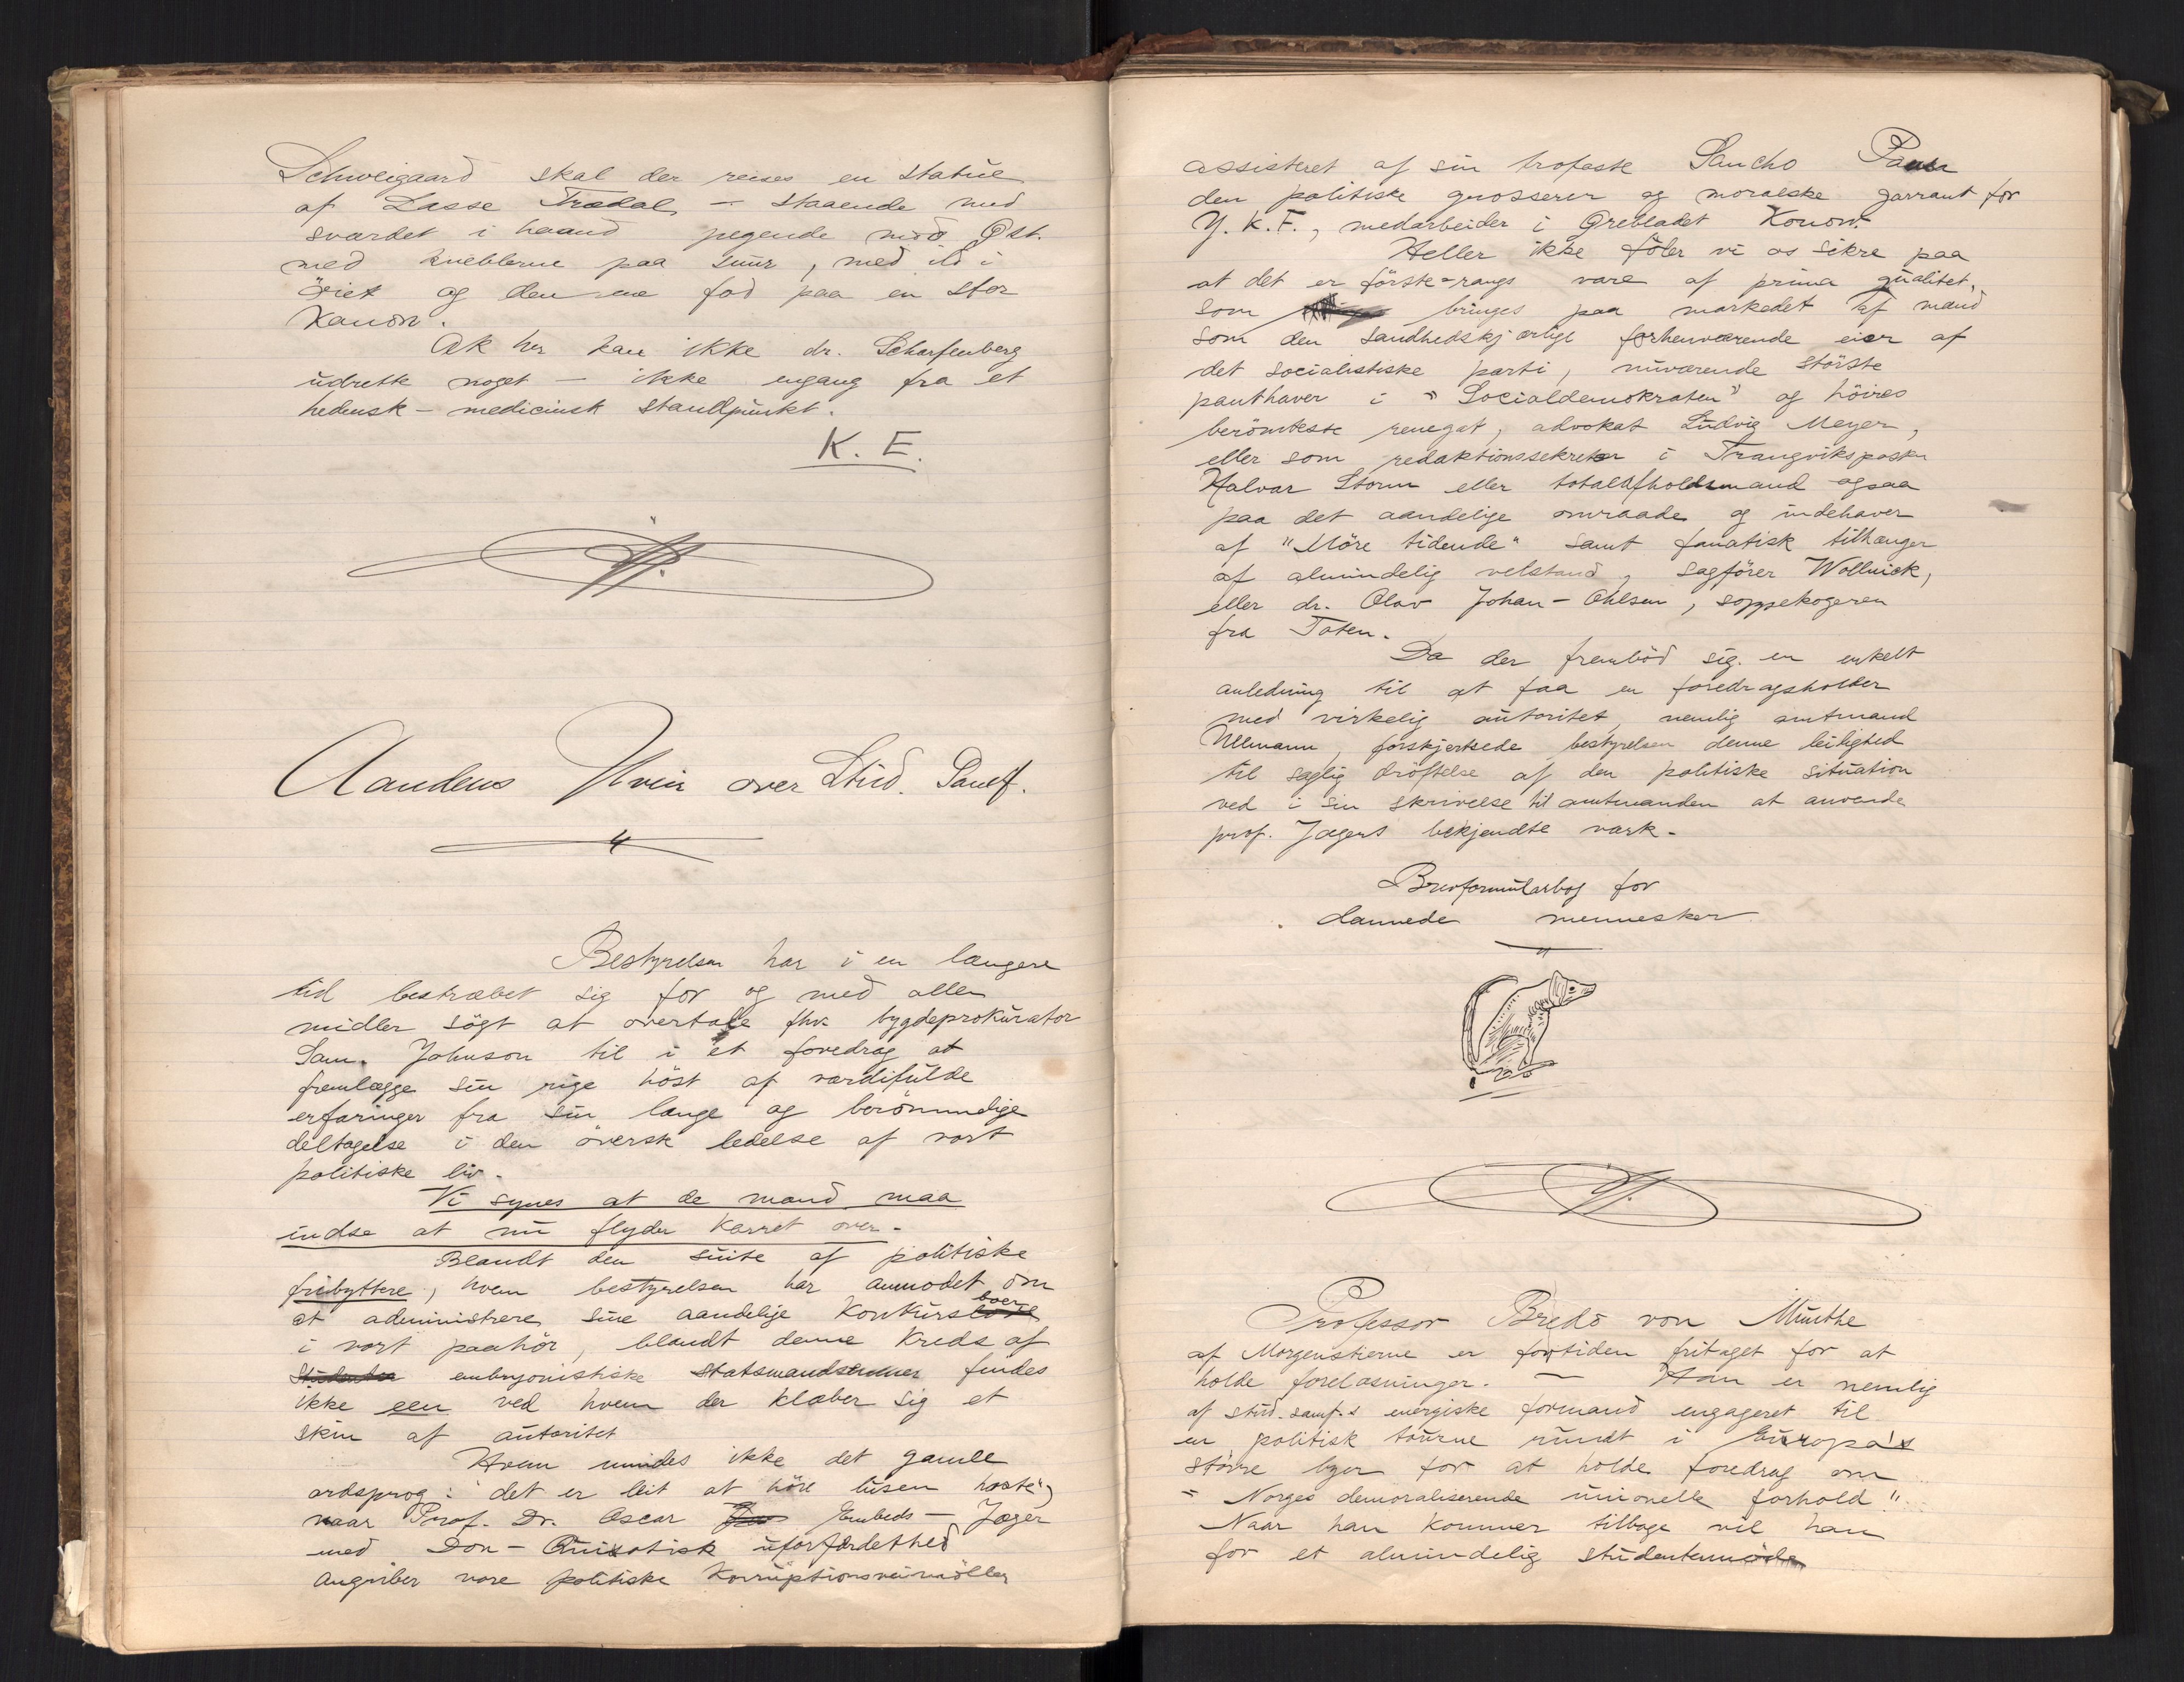 Schweigaard skal der reises en statue
af Lasse Trædal, – staaende med
sværdet i haand pegende mod Øst.
med kneblerne paa snur, med ild i
öiet og den ene fod paa en stor
Kanon.
Ak her kan ikke dr. Scharfenberg
udrette noget – ikke engang fra et
hedensk – medicinsk standpunkt.
K. E.
Aandens Hvin over Stud. Samf.
Bestyrelsen har i en længere
tid bestræbet sig for og med alle
midler sögt at overtale fhv. bygdeprokurator
Sam. Johnson til i et foredrag at
fremlægge sin rige höst af værdifulde
erfaringer fra sin lange og berömmelige
deltagelse i den överste ledelse af vort
politiske liv.
Vi synes at de mænd maa
indse at nu flyder Karret over.
Blandt den suite af politiske
fribyttere, hvem bestyrelsen har anmodet om
at administrere sine aandelige Konkursboer
i vort paahör, blandt denne Kreds af
Studenter embryonistiske statsmandsemner findes
ikke een ved hvem der klæber sig et
skin af autoritet
Hvem mindes ikke det gamle
ordsprog: det er leit at höre lusen hoste",
naar Prof. Dr. Oscar Embeds – Jæger
med Don – Quixotisk uforfærdethed
angriber vore politiske Korruptionsveirmöller
assisteret af sin trofaste Sancho Pansa
den politiske grosserer og moralske garrant for
Y. K. F., medarbeider i Örebladet Konow.
Heller ikke föler vi os sikre paa
at det er förste-rangs vare af prima qualitet,
som bringes paa markedet af mænd
som den sandhedskjærlige forhenværende eier af
det socialistiske parti, nuværende störste
panthaver i "Socialdemokraten" og höires
berömteste renegat, advokat Ludvig Meyer,
eller som redaktionssekretær i Trangviksposten
Halvar Storm eller totalafholdsmand ogsaa
paa det aandelige omraade og indehaver
af "Möre tidende" samt fanatisk tilhænger
af almindelig velstand, sagförer Wollnick,
eller dr. Olav Johan – Ohlsen, soppekogeren
fra Toten.
Da der fremböd sig en enkelt
anledning til at faa en foredragsholder
med virkelig autoritet, nemlig amtmand
Ullmann, forskjertsede bestyrelsen denne leilighed
til saglig dröftelse af den politiske situation
ved i sin skrivelse til amtmanden at anvende
prof. Jægers bekjendte værk.
Brevformularbog for
dannede mennesker
Professor Bredo von Munthe
af Morgenstierne er fortiden fritaget for at
holde forelæsninger. – Han er nemlig
af stud. samf.s energiske formand engageret til
en politisk tourne rundt i Europa's
större byer for at holde foredrag om
"Norges demoraliserende unionelle forhold".
Naar han kommer tilbage vil han
for et almindelig studentermöde